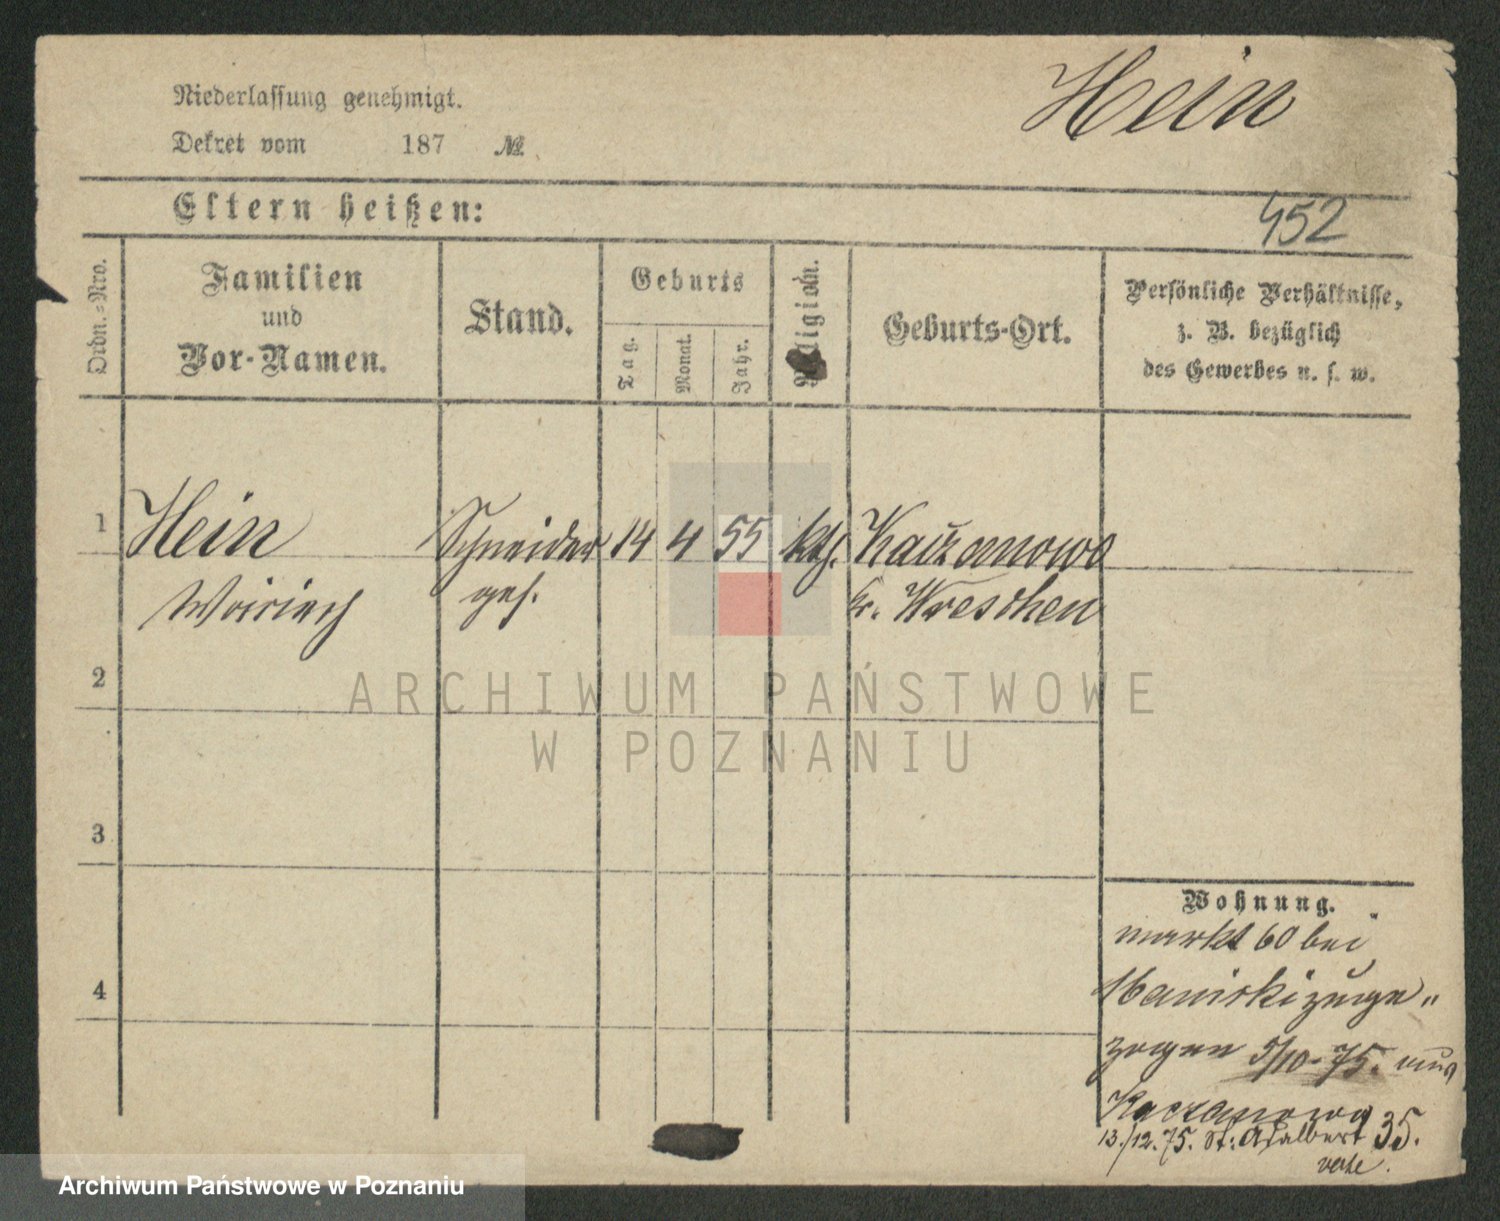 Hein
Niederlassung genehmigt.
Dekret vom 187 №
Eltern heißen:
452
Ordn.-Nro.
Familien
und
Vor-Namen.
Stand.
Geburts
Tag.
Monat.
Jahr.
Religion.
Geburts-Ort.
Persönliche Verhältnisse,
z. B. bezüglich
des Gewerbes u. s. w.
1 Hein Schneider 14 4 55 kth. Kaczanowo
geh. Kr. Wreschen
2
3
4
Wohnung.
markt 60 bei
zuge-
zogen 5/10-75. aus
Kaczanowo
13./12.75. St: Adalbert 35.
ARCHIWUM PAŃSTWOWE
W POZNANIU
Archiwum Państwowe w Poznaniu